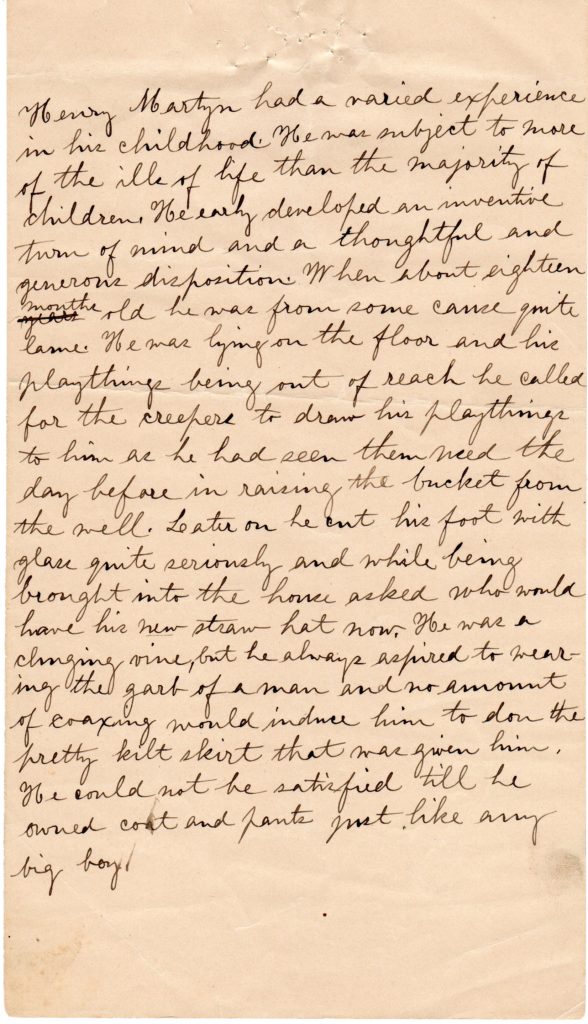 Henry Martyn had a varied experience
in his childhood. He was subject to more
of the ills of life than the majority of
children. He early developed an inventive
turn of mind and a thoughtful and
generous disposition. When about eighteen
months
years old he was from some cause quite
lame. He was lying on the floor and his
playthings being out of reach he called
for the creepers to draw his playthings
to him as he had seen them used the
day before in raising the bucket from
the well. Later on he cut his foot with
glass quite seriously and while being
brought into the house asked who would
have his new straw hat now. He was a
clinging vine, but he always aspired to wear-
ing the garb of a man and no amount
of coaxing would induce him to don the
pretty kilt skirt that was given him.
He could not be satisfied till he
owned coat and pants just like any
big boy.